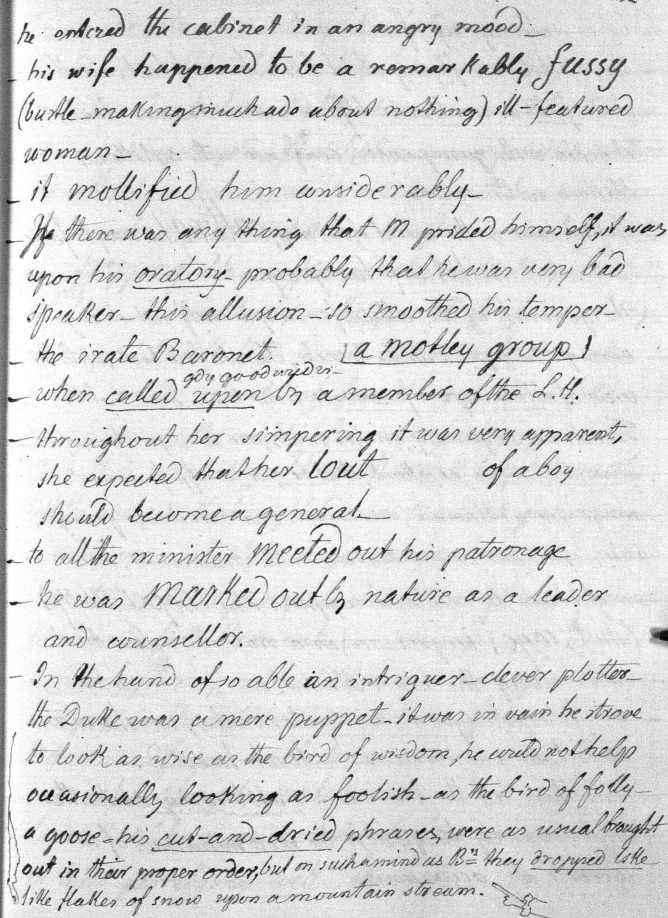 he entered the cabinet in an angry mood_
_ his wife happened to be a remarkably fussy
(bustle_making much ado about nothing) ill-featured
woman_
_ it mollified him considerably_
_ If there was any thing that M prided himself, it was
upon his oratory_ probably that he was very bad
speaker_ this allusion_ so smoothed his temper_
_ the irate Baronet (a motley group)
_ when called upon by a member of the L.H.
_ throughout her simpering it was very apparent,
she expected that her lout of a boy
should become a general_
_ to all the minister meeted out his patronage
_ he was marked out by nature as a leader
and counsellor.
_ In the hand of so able an intriguer_clever plotter_
the Duke was a mere puppet_it was in vain he strove
to look as wise as the bird of wisdom, he could not help
occasionally looking as foolish_as the bird of folly_
a goose_his cut-and-dried phrases, were as usual brought
out in their proper order, but on such a mind as Bns they dropped like
like flakes of snow upon a mountain stream.